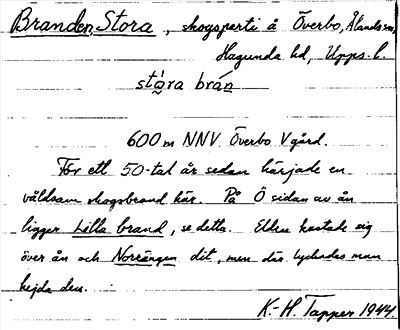 Branden, Stora, skogsparti å Överbo, Ålands sn,
Hagunda hd, Upps. l.
stóra brán
600 m NNV Överbo V gård.
För ett 50-tal år sedan härjade en
våldsam skogsbrand här. På Ö sidan av ån
ligger Lilla brand, se detta. Elden kastade sig
över ån och Norrängen dit, men där lyckades man
hejda den.
K.-H. Tapper 1944.